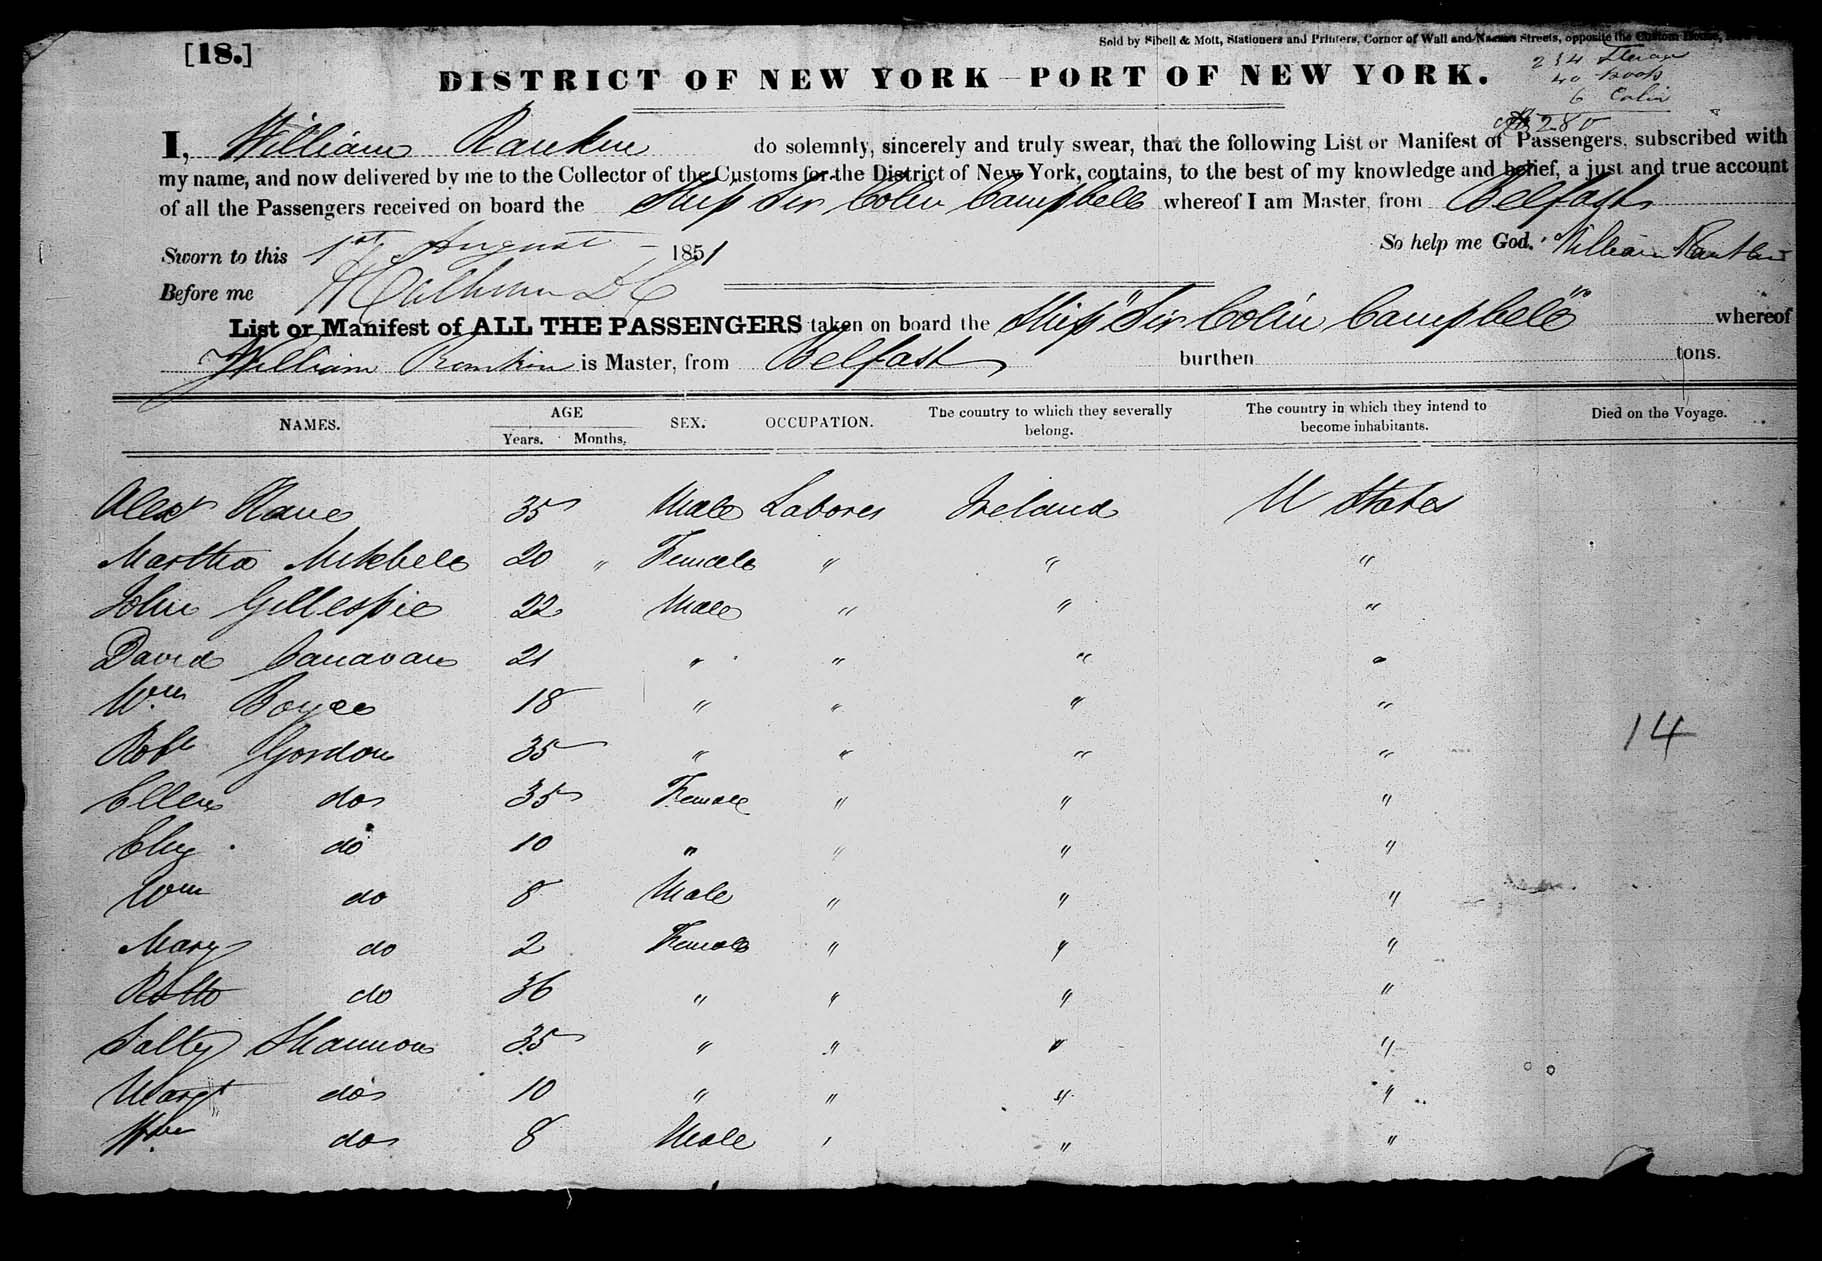 [18.]
Sold by Sibell & Mott, Stationers and Printers, Corner of Wall and Nassau Streets, opposite the Custom House,
234 Steerage
40
6 Cabin
280
DISTRICT OF NEW YORK—PORT OF NEW YORK.
I, William Rankin do solemnly, sincerely and truly swear, that the following List or Manifest of Passengers, subscribed with
my name, and now delivered by me to the Collector of the Customs for the District of New York, contains, to the best of my knowledge and belief, a just and true account
of all the Passengers received on board the Ship Sir Colin Campbell whereof I am Master, from Belfast
Sworn to this 1st August 1851 So help me God. William Rankin
Before me
List or Manifest of ALL THE PASSENGERS taken on board the Ship "Sir Colin Campbell" whereof
William Rankin is Master, from Belfast burthen tons.
NAMES. AGE Years. Months. SEX. OCCUPATION. The country to which they severally belong. The country in which they intend to become inhabitants. Died on the Voyage.
Alexr Kane 35 Male Labores Ireland U States
Martha Mikbell 20 " Female " " "
John Gillespie 22 Male " " "
David Canavan 21 " " " "
Wm Boyce 18 " " " "
Robt Gordon 35 " " " "
14
Ellen do 35 Female " " "
Eliz do 10 " " " "
Wm do 8 Male " " "
Mary do 2 Female " " "
do 36 " " " "
Sally Shannon 35 " " " "
Margt do 10 " " " "
Wm do 8 Male " " "